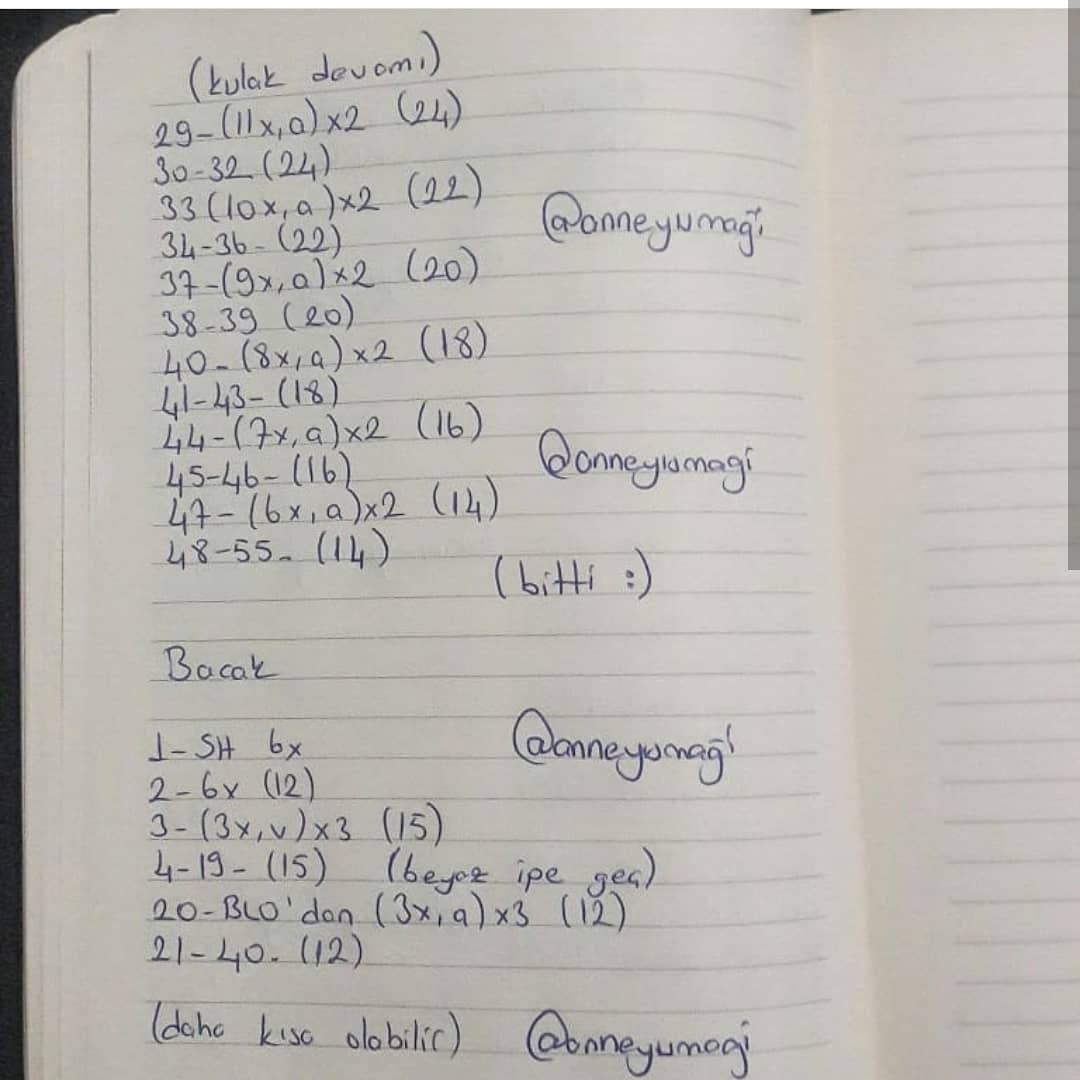 (kulak devamı)
29-(11x,a)x2 (24)
30-32 (24)
33 (10x,a)x2 (22)
@anneyumağı
34-36- (22)
37-(9x,a)x2 (20)
38-39 (20)
40-(8x,a)x2 (18)
41-43- (18)
44-(7x,a)x2 (16)
@anneyumagi
45-46- (16)
47-(6x,a)x2 (14)
48-55- (14)
(bitti :)
Bacak
1- SH 6x
@anneyumağı
2-6x (12)
3-(3x,v)x3 (15)
4-19- (15) (beyaz ipe geç)
20-BLO'dan (3x,a)x3 (12)
21-40- (12)
(daha kısa olabilir) @anneyumagi